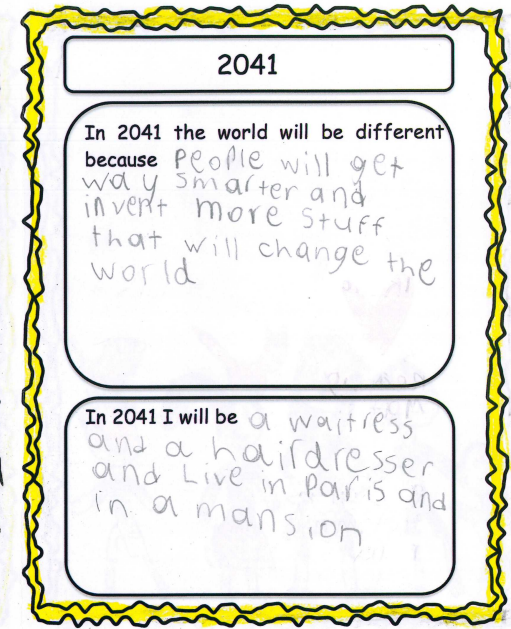 2041
In 2041 the world will be different
because people will get
way smarter and
invent more stuff
that will change the
world
In 2041 I will be a waitress
and a hairdresser
and Live in Paris and
in a mansion